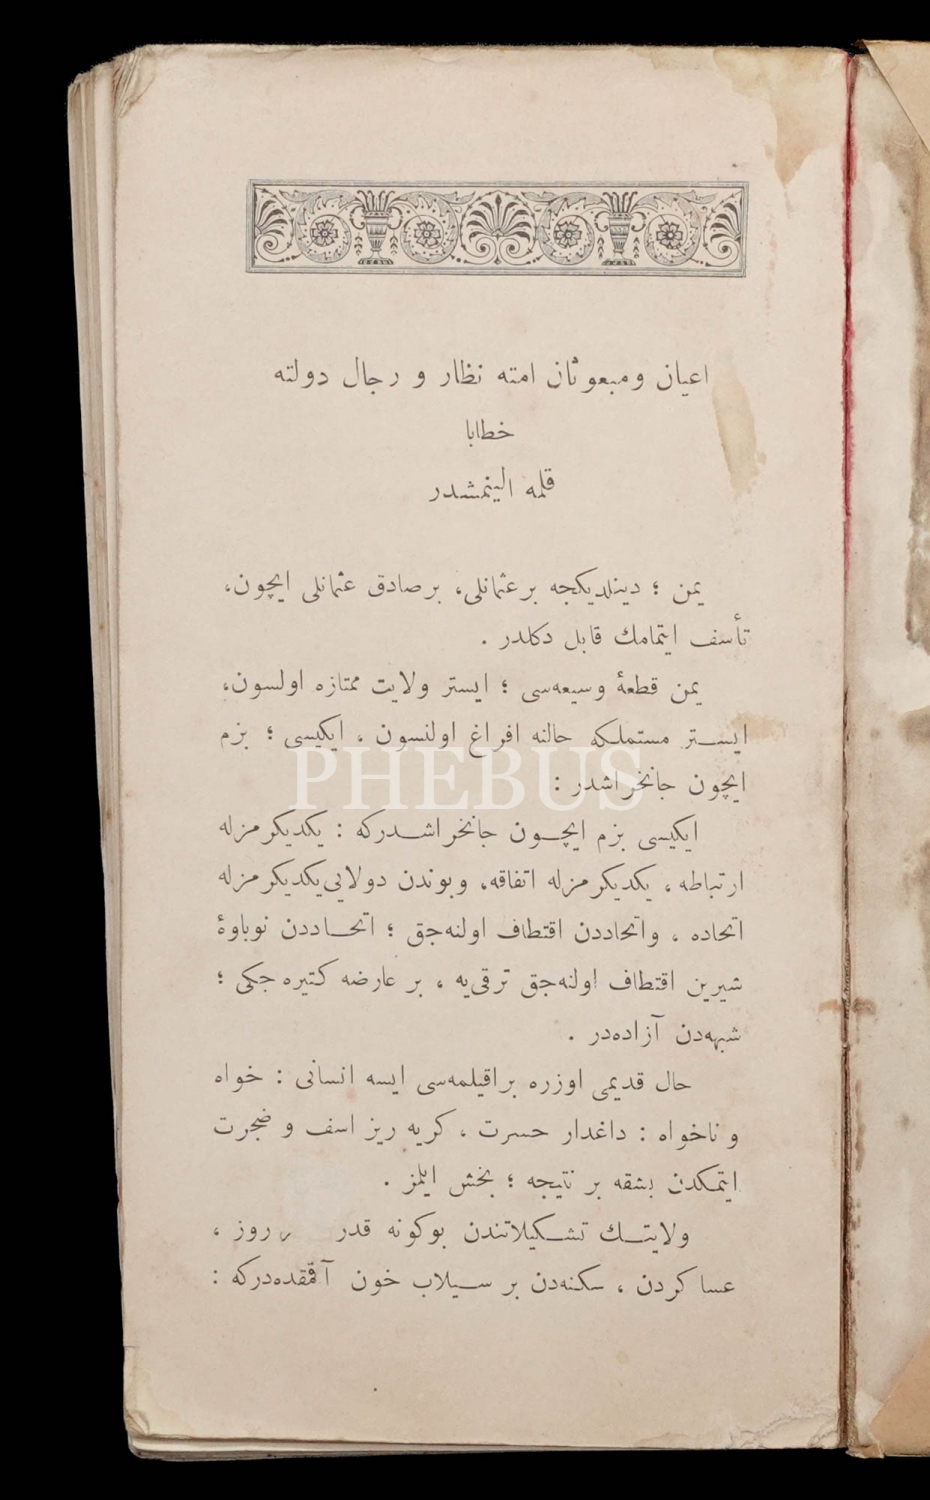 اعیان ومبعوثان امته نظار و رجال دولته
خطابا
قلمه النیمشدر
یمن ؛ دینلدیکجه برعثمانلی، برصادق عثمانلی ایچون،
تأسف ایتمامك قابل دکلدر .
یمن قطعهٔ وسیعه‌سی ؛ ایستر ولایت ممتازه اولسون،
ایستر مستملکه حالنه افراغ اولنسون ، ایکیسی ؛ بزم
PHEBUS
ایچون جانخراشدر :
ایکیسی بزم ایچون جانخراشدرکه : یکدیکرمزله
ارتباطه ، یکدیکرمزله اتفاقه، وبوندن دولایی یکدیکرمزله
اتحاده ، واتحاددن اقتطاف اولنه‌جق ؛ اتحاددن نوباوهٔ
شیرین اقتطاف اولنه‌جق ترقی‌یه ، بر عارضه کتیره جکی ؛
شبهه‌دن آزاده‌در .
حال قدیمی اوزره براقیلمه‌سی ایسه انسانی : خواه
و ناخواه : داغدار حسرت ، کریه ریز اسف و ضجرت
ایتمکدن بشقه بر نتیجه ؛ بخش ایلمز .
ولایتك تشکیلاتندن بوکونه قدر روز ،
عساکردن ، سکنه‌دن بر سیلاب خون آقمقده‌درکه :